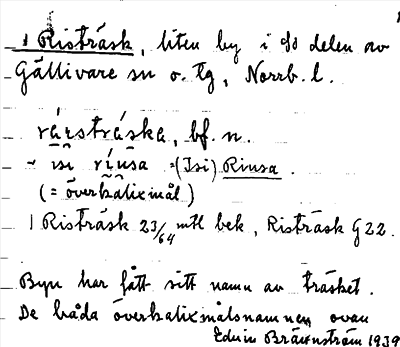 1 Risträsk, liten by i So delen av
Gällivare sn o. tg, Norrb. l.
rásstráska, bf. n.
~ isi riusa =(Isi) Riusa.
(= överkalixmål)
1 Risträsk 23/64 mtl bek, Risträsk G 22.
Byn har fått sitt namn av träsket.
De båda överkalixmålsnamnen ovan
Edvin Brännström 1939